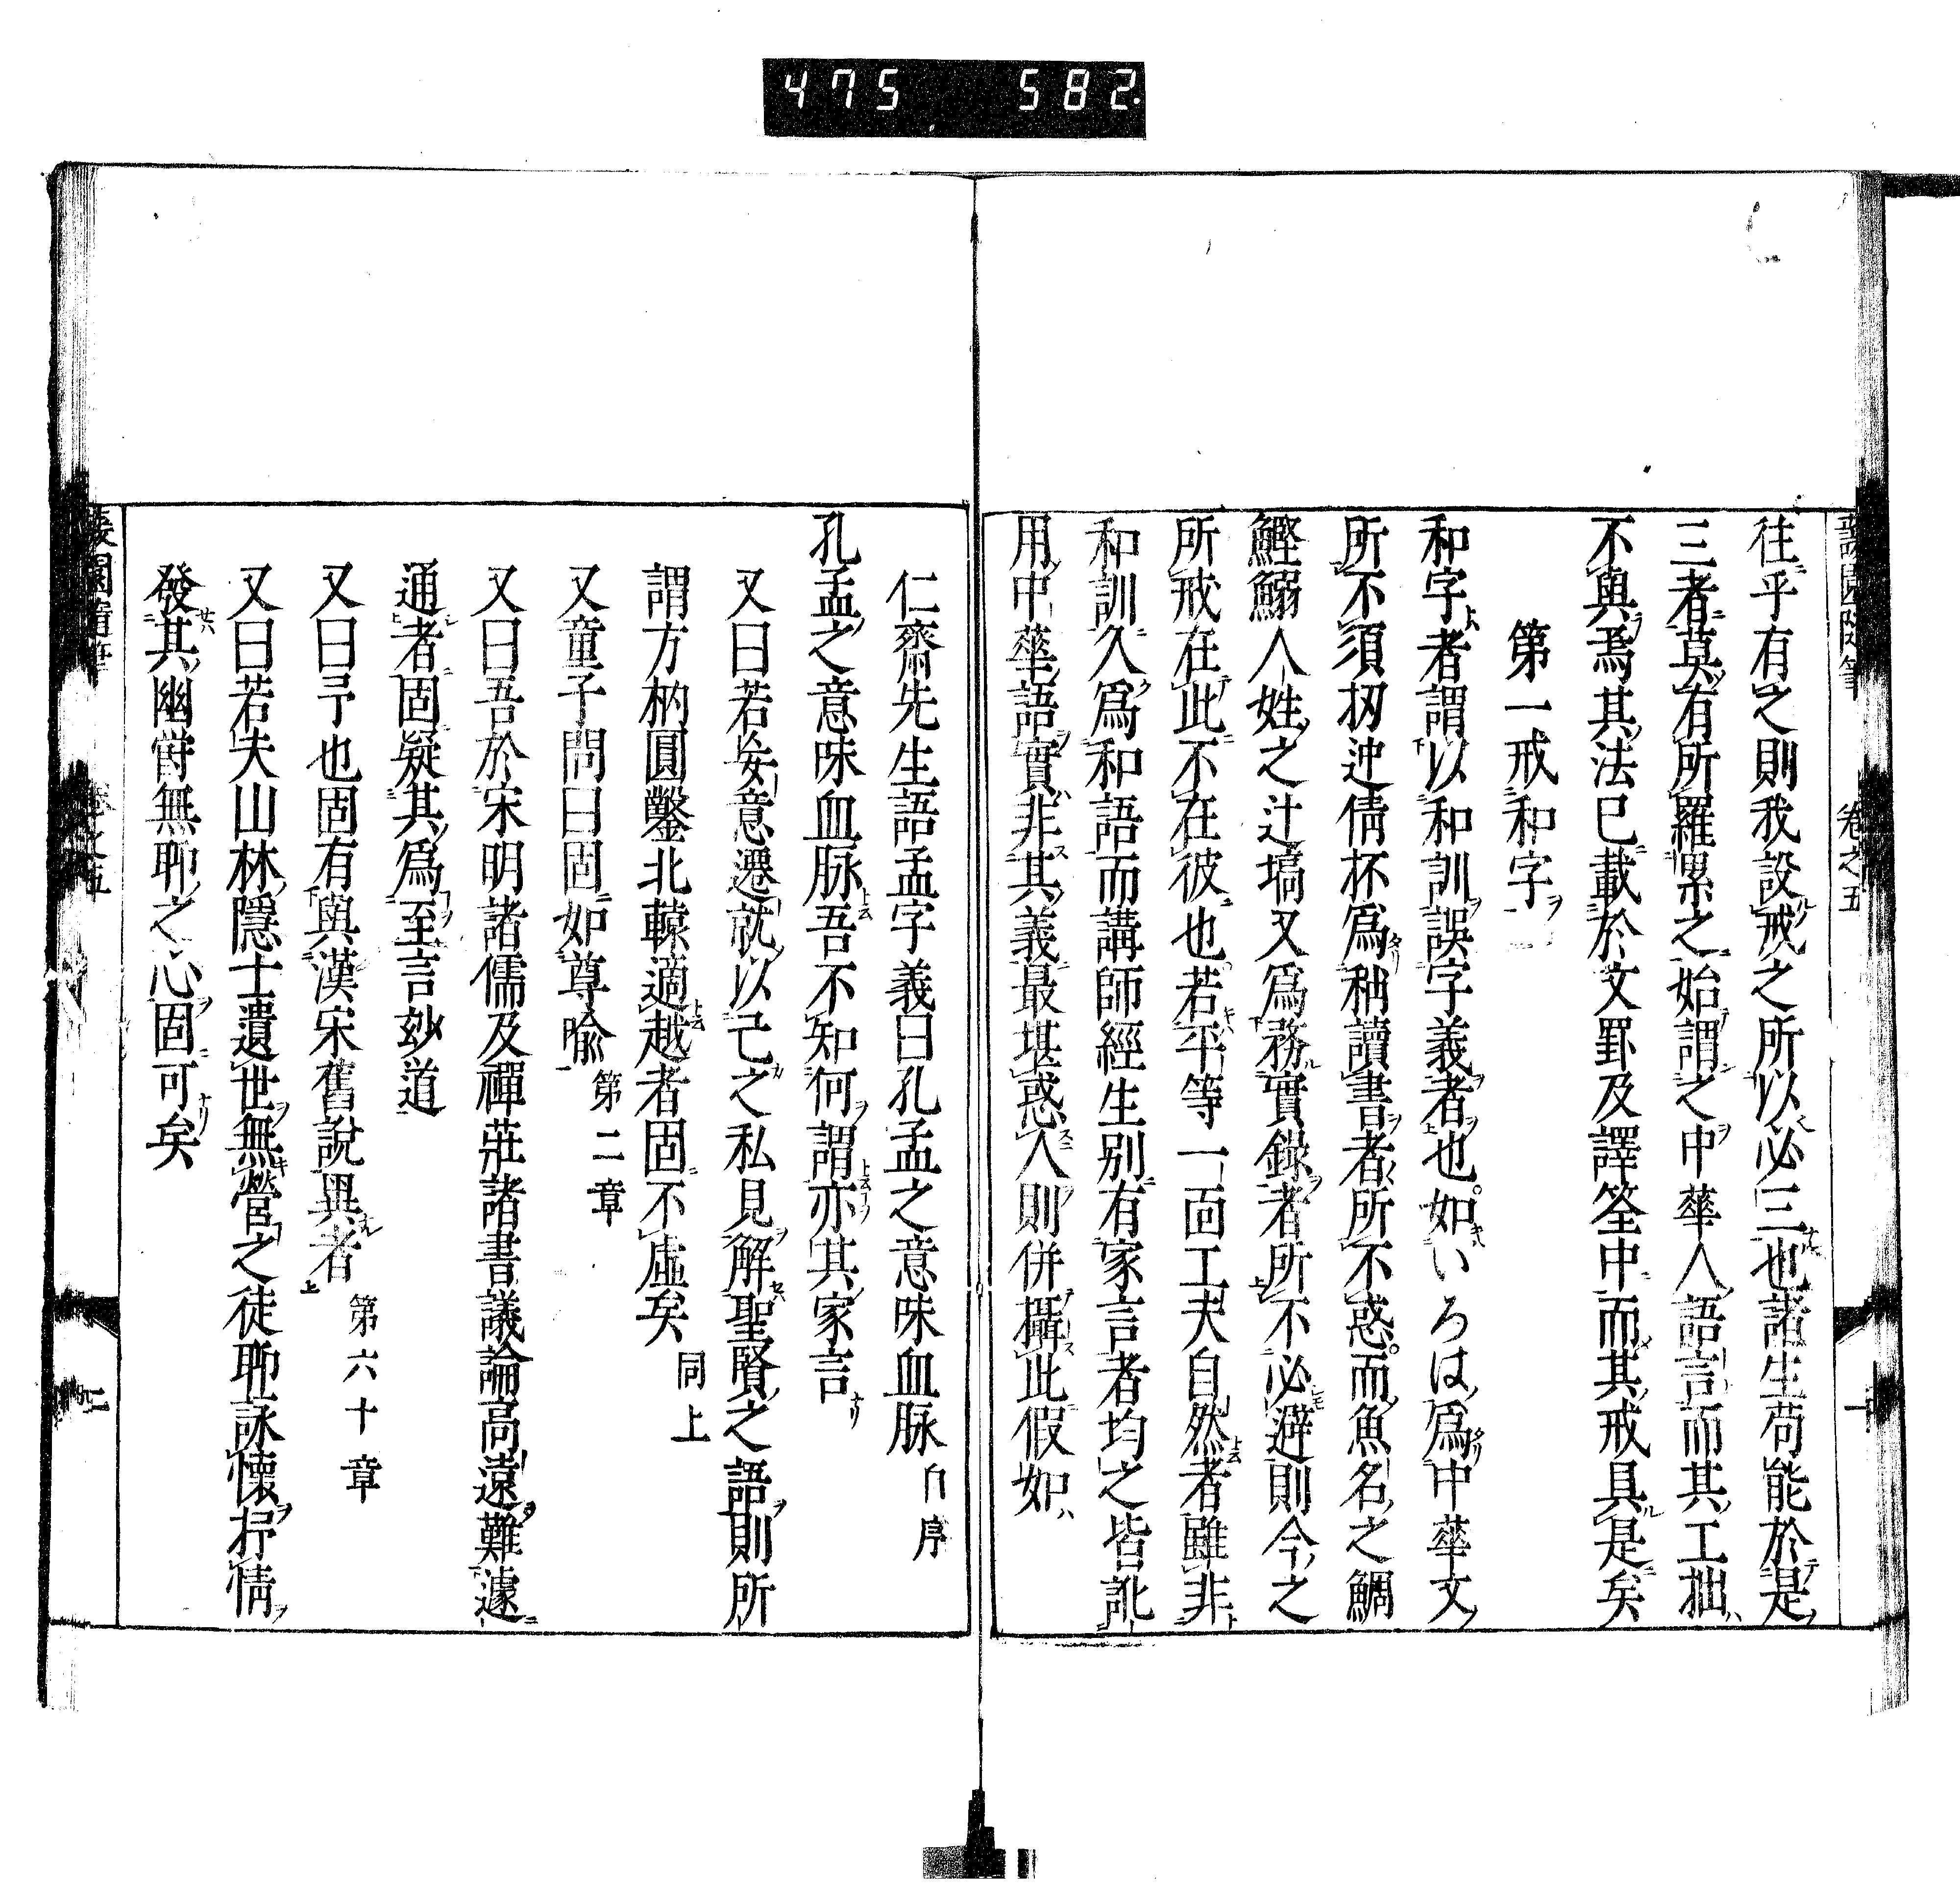 475 582.
卷之五 一
往乎有之則我設戒之所以必三也諸生苟能於是
三者莫有所羅累之始謂之中華人語言而其工拙
不與焉其法已載於文罫及譯筌中而其戒具是矣
第一戒和字
和字者謂以和訓誤字義者也如いろは爲中華文
所不須扨迚偖杯爲稱讀書者所不惑而魚名之鯛
鰹鰯人姓之辻塙又爲務實錄者所不必避則今之
所戒在此不在彼也若平等一面工夫自然者雖非
和訓久爲和語而講師經生別有家言者均之皆訛
用中華語實非其義最堪惑人則併攝此假如
仁齋先生語孟字義曰孔孟之意味血脉
孔孟之意味血脉吾不知何謂亦其家言
又曰若妄意遷就以己之私見解聖賢之語則所
謂方枘圓鑿北轅適越者固不虛矣同上
又童子問曰固如尊喩第二章
又曰吾於宋明諸儒及禪莊諸書議論高遠難遽
通者固疑其爲至言玅道
又曰予也固有與漢宋舊說異者第六十章
又曰若夫山林隱士遺世無營之徒聊詠懷抒情
發其幽欝無聊之心固可矣
卷之五 二